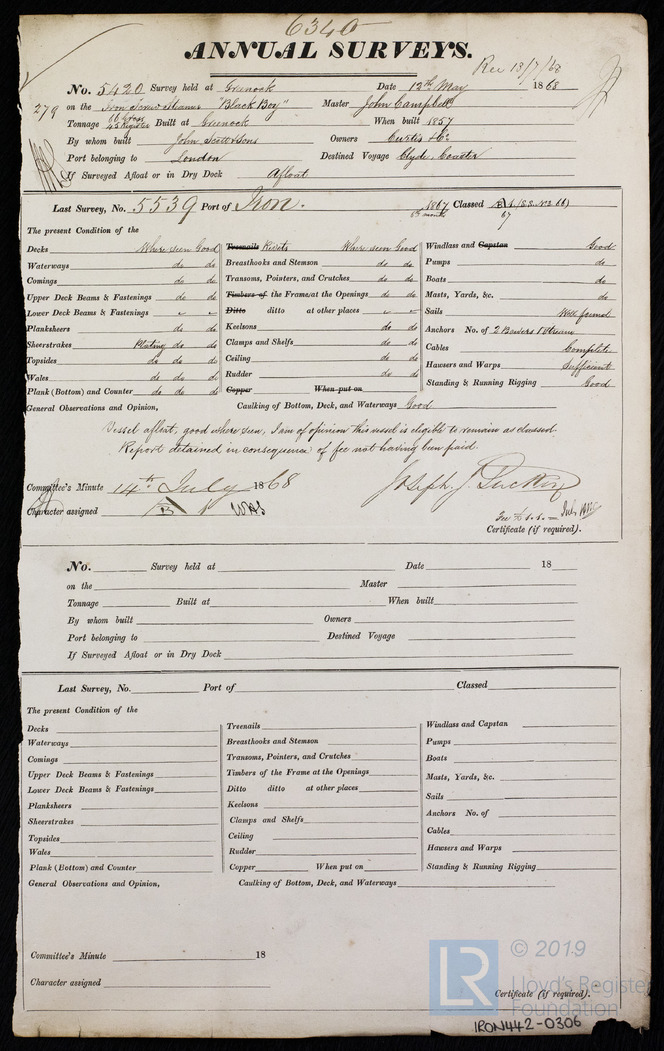 6340
ANNUAL SURVEYS.
Rec 13/7/68
No. 5420 Survey held at Greenock Date 12th May 1868
279 on the Iron Screw Steamer "Black Boy" Master John Campbell
Tonnage 66 Gross 45 Register Built at Greenock When built 1857
By whom built John Scott & Sons Owners Curtis & Co
Port belonging to London Destined Voyage Clyde, Coaster
If Surveyed Afloat or in Dry Dock Afloat
Last Survey, No. 5539 Port of Iron. 1867 6th month Classed
67
The present Condition of the
Decks Where seen Good Treenails Rivets Where seen Good Windlass and Capstan Good
Waterways do do Breasthooks and Stemson do do Pumps do
Comings do do Transoms, Pointers, and Crutches do do Boats do
Upper Deck Beams & Fastenings do do Timbers of the Frame at the Openings do do Masts, Yards, &c. do
Lower Deck Beams & Fastenings Ditto ditto at other places Sails Well found
Planksheers do do Keelsons do do Anchors No. of 2 Bowers 1 Stream
Sheerstrakes Plating do do Clamps and Shelfs do do Cables Complete
Topsides do do do Ceiling do do Hawsers and Warps Sufficient
Wales do do do Rudder do do Standing & Running Rigging Good
Plank (Bottom) and Counter do do do Copper When put on
General Observations and Opinion, Caulking of Bottom, Deck, and Waterways Good
Vessel afloat, good where seen, I am of opinion this vessel is eligible to remain as classed
Report detained in consequence of fee not having been paid
Committee's Minute 14th July 1868
Character assigned
Certificate (if required).
No. Survey held at Date 18
on the Master
Tonnage Built at When built
By whom built Owners
Port belonging to Destined Voyage
If Surveyed Afloat or in Dry Dock
Last Survey, No. Port of Classed
The present Condition of the
Decks Treenails Windlass and Capstan
Waterways Breasthooks and Stemson Pumps
Comings Transoms, Pointers, and Crutches Boats
Upper Deck Beams & Fastenings Timbers of the Frame at the Openings Masts, Yards, &c.
Lower Deck Beams & Fastenings Ditto ditto at other places Sails
Planksheers Keelsons Anchors No. of
Sheerstrakes Clamps and Shelfs Cables
Topsides Ceiling Hawsers and Warps
Wales Rudder Standing & Running Rigging
Plank (Bottom) and Counter Copper When put on
General Observations and Opinion, Caulking of Bottom, Deck, and Waterways
Committee's Minute 18
Character assigned
Certificate (if required).
LR © 2019
Lloyd's Register
Foundation
IRON442-0306